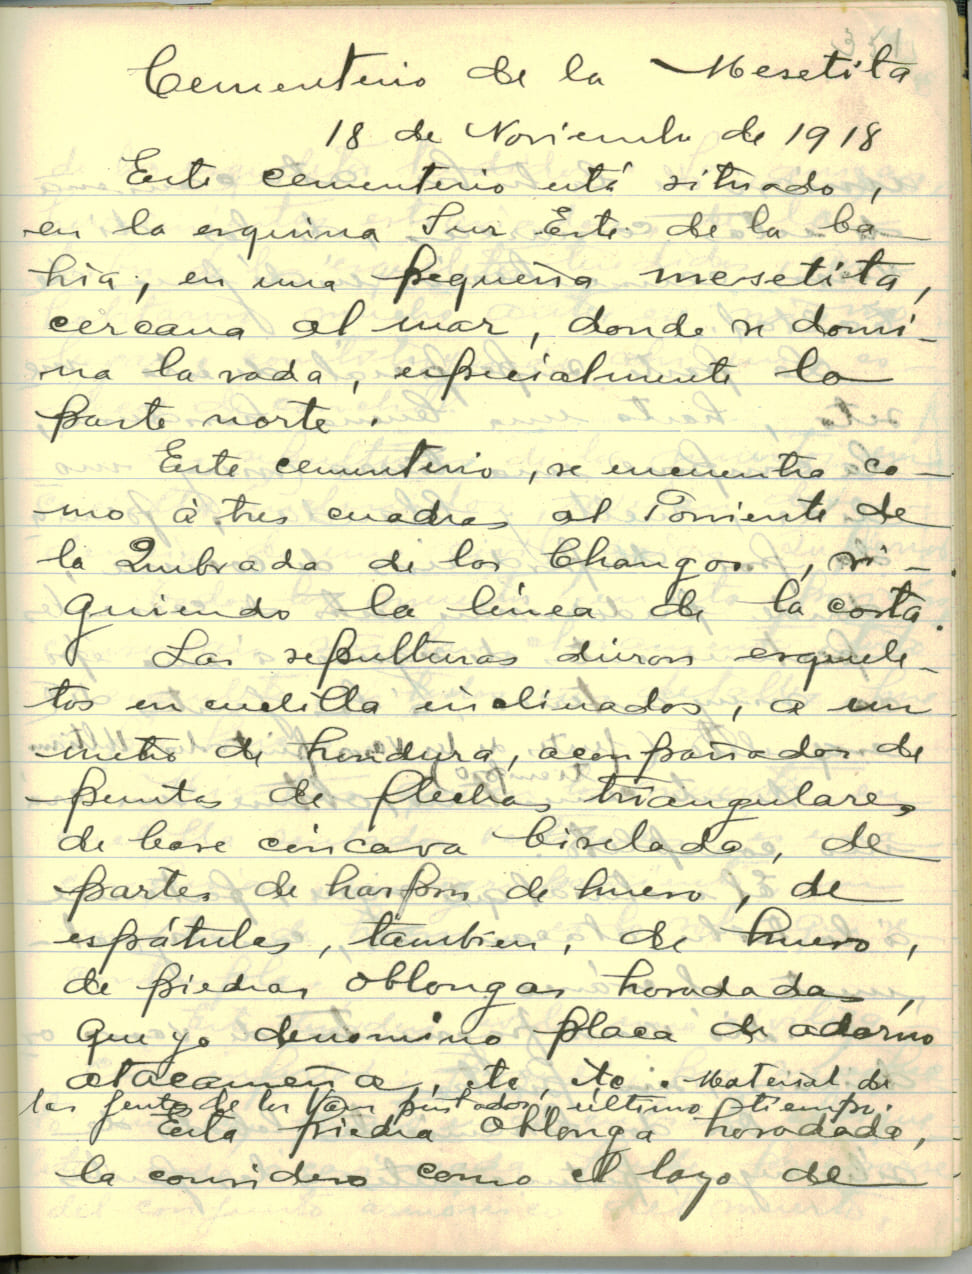 Cementerio de la Mesetita
18 de Noviembre de 1918
Este cementerio está situado,
en la esquina Sur Este de la ba-
hia, en una pequeña mesetita,
cercana al mar, donde se domi-
na la rada, especialmente la
parte norte.
Este cementerio, se encuentra co-
mo á tres cuadras al Poniente de
la Quebrada de los Changos, si-
guiendo la línea de la costa.
Las sepulturas dieron esquele-
tos en cuclilla inclinados, a un
metro de hondura, acompañados de
puntas de flechas triangulares,
de base cóncava biselada, de
partes de harpon de hueso, de
espátulas, tambien, de hueso,
de piedras oblongas horadadas,
que yo denomino placa de adorno
atacameña, etc, etc. Material de
las gentes de los pintados, último tiempo.
Esta piedra oblonga horadada,
la considero como el layo de